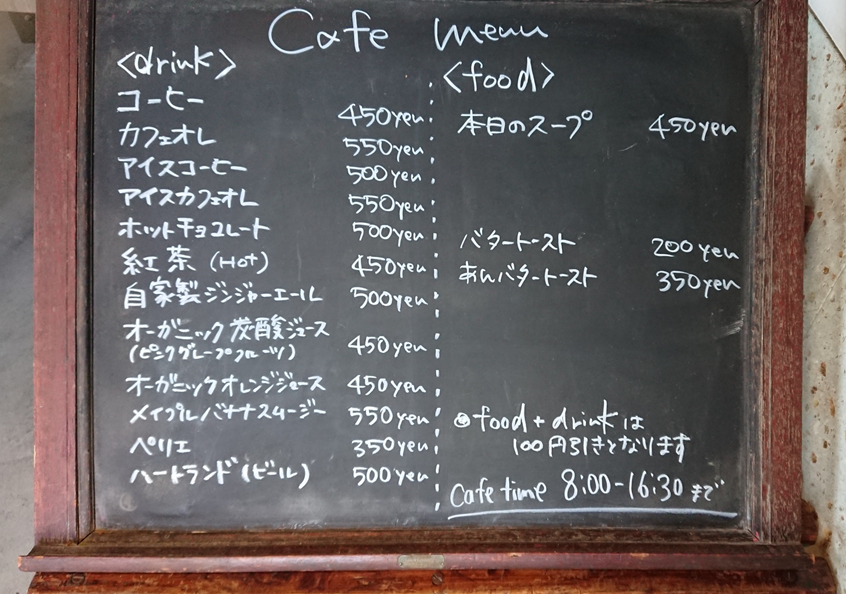 Cafe menu
<drink>
コーヒー 450yen
カフェオレ 550yen
アイスコーヒー 500yen
アイスカフェオレ 550yen
ホットチョコレート 500yen
紅茶 (Hot) 450yen
自家製ジンジャーエール 500yen
オーガニック炭酸ジュース
(ピンクグレープフルーツ) 450yen
オーガニックオレンジジュース 450yen
メイプルバナナスムージー 550yen
ペリエ 350yen
ハートランド(ビール) 500yen
<food>
本日のスープ 450yen
バタートースト 200yen
あんバタートースト 350yen
◎food + drinkは
100円引きとなります
Cafe time 8:00-16:30まで